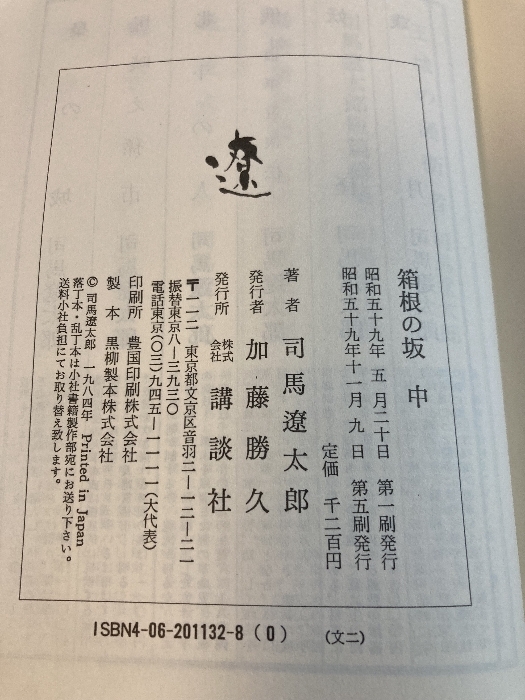 遼
箱根の坂 中
昭和五十九年 五 月二十日 第一刷発行
昭和五十九年十一月 九 日 第五刷発行
定価 千二百円
著 者 司馬遼太郎
発行者 加藤勝久
発行所 株式会社 講談社
〒一一二 東京都文京区音羽二―一二―二一
振替東京八―三九三〇
電話東京(〇三)九四五―一一一一(大代表)
印刷所 豊国印刷株式会社
製 本 黒柳製本株式会社
© 司馬遼太郎 一九八四年 Printed in Japan
落丁本・乱丁本は小社書籍製作部宛にお送り下さい。
送料小社負担にてお取り替え致します。
ISBN4-06-201132-8 (0) (文二)